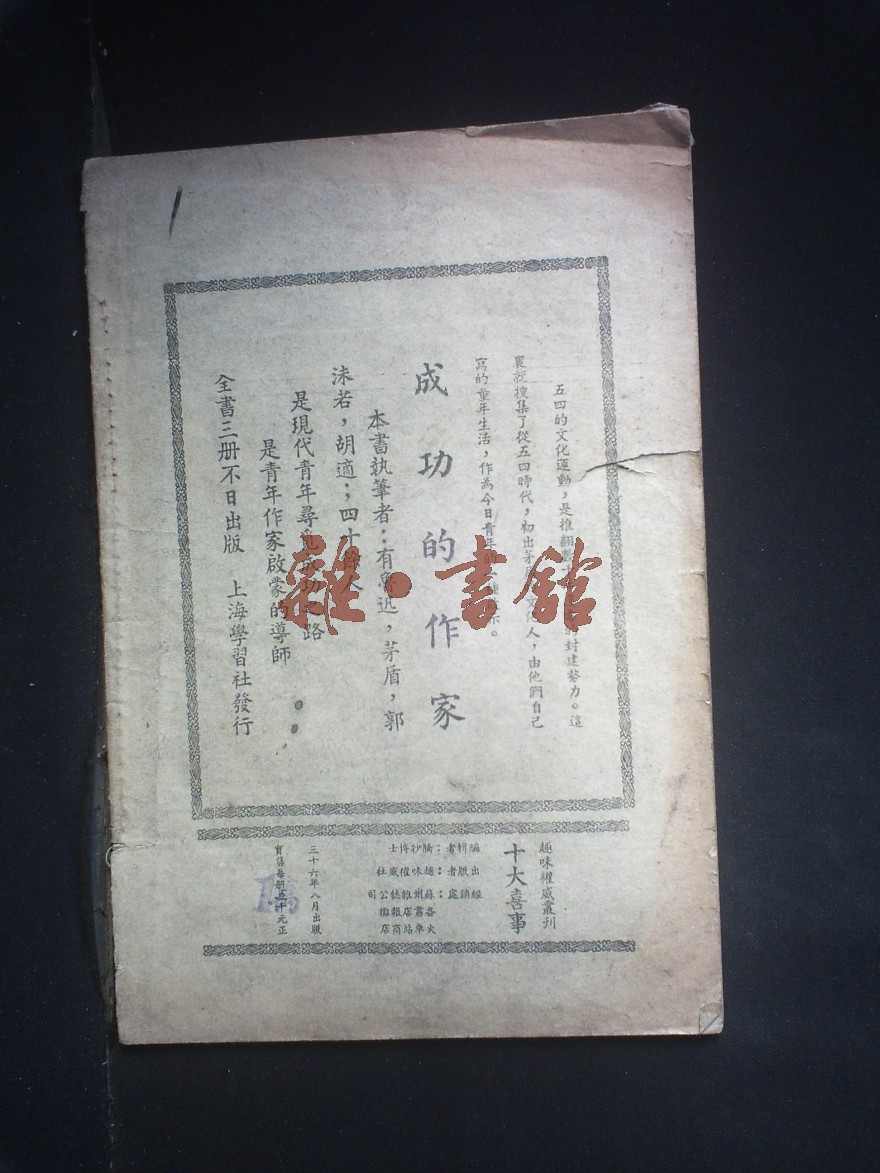 五四的文化運動，是推翻數 封建勢力。這
裏就搜集了從五四時代，初出茅 人，由他們自己
寫的童年生活，作為今日青年 。
成功的作家
本書執筆者：有魯迅，茅盾，郭
沫若，胡適；四十餘人
是現代青年尋覓成功之路
是青年作家啟蒙的導師
全書三册不日出版 上海學習社發行
雜·書館
趣味權威叢刊
十大喜事
編輯者：騙抄博士
出版者：趣味權威社
經銷處：蘇州雜誌公司
各書店報攤
火車站商店
三十六年八月出版
實售每册 元正